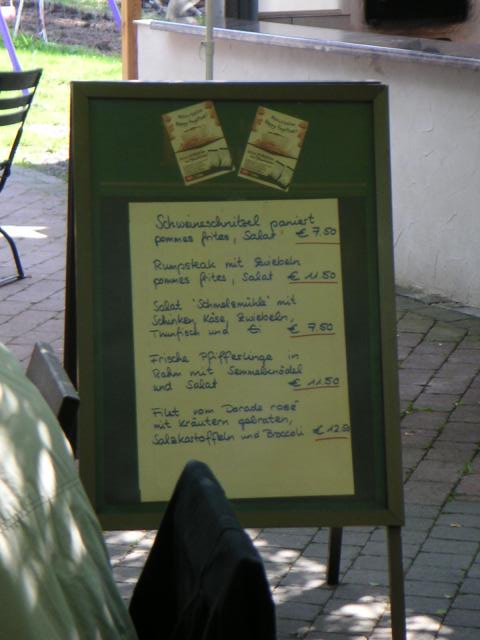 Schweineschnitzel paniert
pommes frites, Salat € 7.50
Rumpsteak mit Zwiebeln
pommes frites, Salat € 11.50
Salat 'Schmelzmühle' mit
Schinken, Käse, Zwiebeln,
Thunfisch und Ei € 7.50
Frische Pfifferlinge in
Rahm mit Semmelknödel
und Salat € 11.50
Filet vom Dorade rosé
mit Kräutern gebraten,
Salzkartoffeln und Broccoli € 12.50